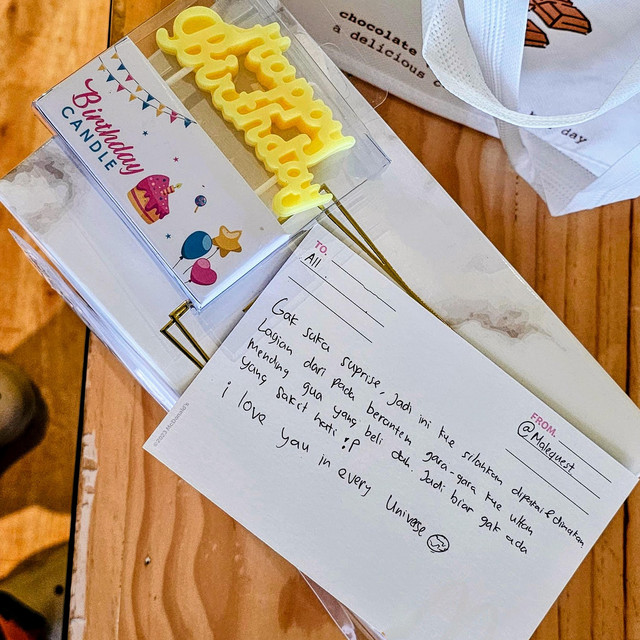 chocolate
a delicious
day
Happy
Birthday
Birthday
CANDLE
TO.
All.
FROM.
@Malequest
Gak suka surprise. Jadi ini kue silahkan dipotai & dimakan
Lagian dari pada berantem gara-gara kue ultah
mending gua yang beli dah. Jadi biar gak ada
yang sakit hati :P
i love you in every Universe